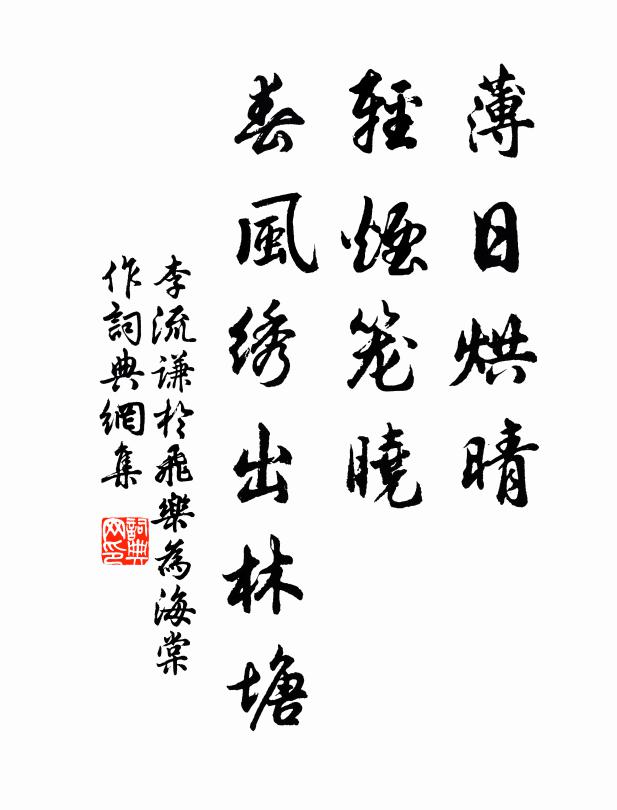 薄日烘晴
輕煙笼曉
春風绣出林塘
李流谦於飛樂為海棠
作詞典網集
詞典网印